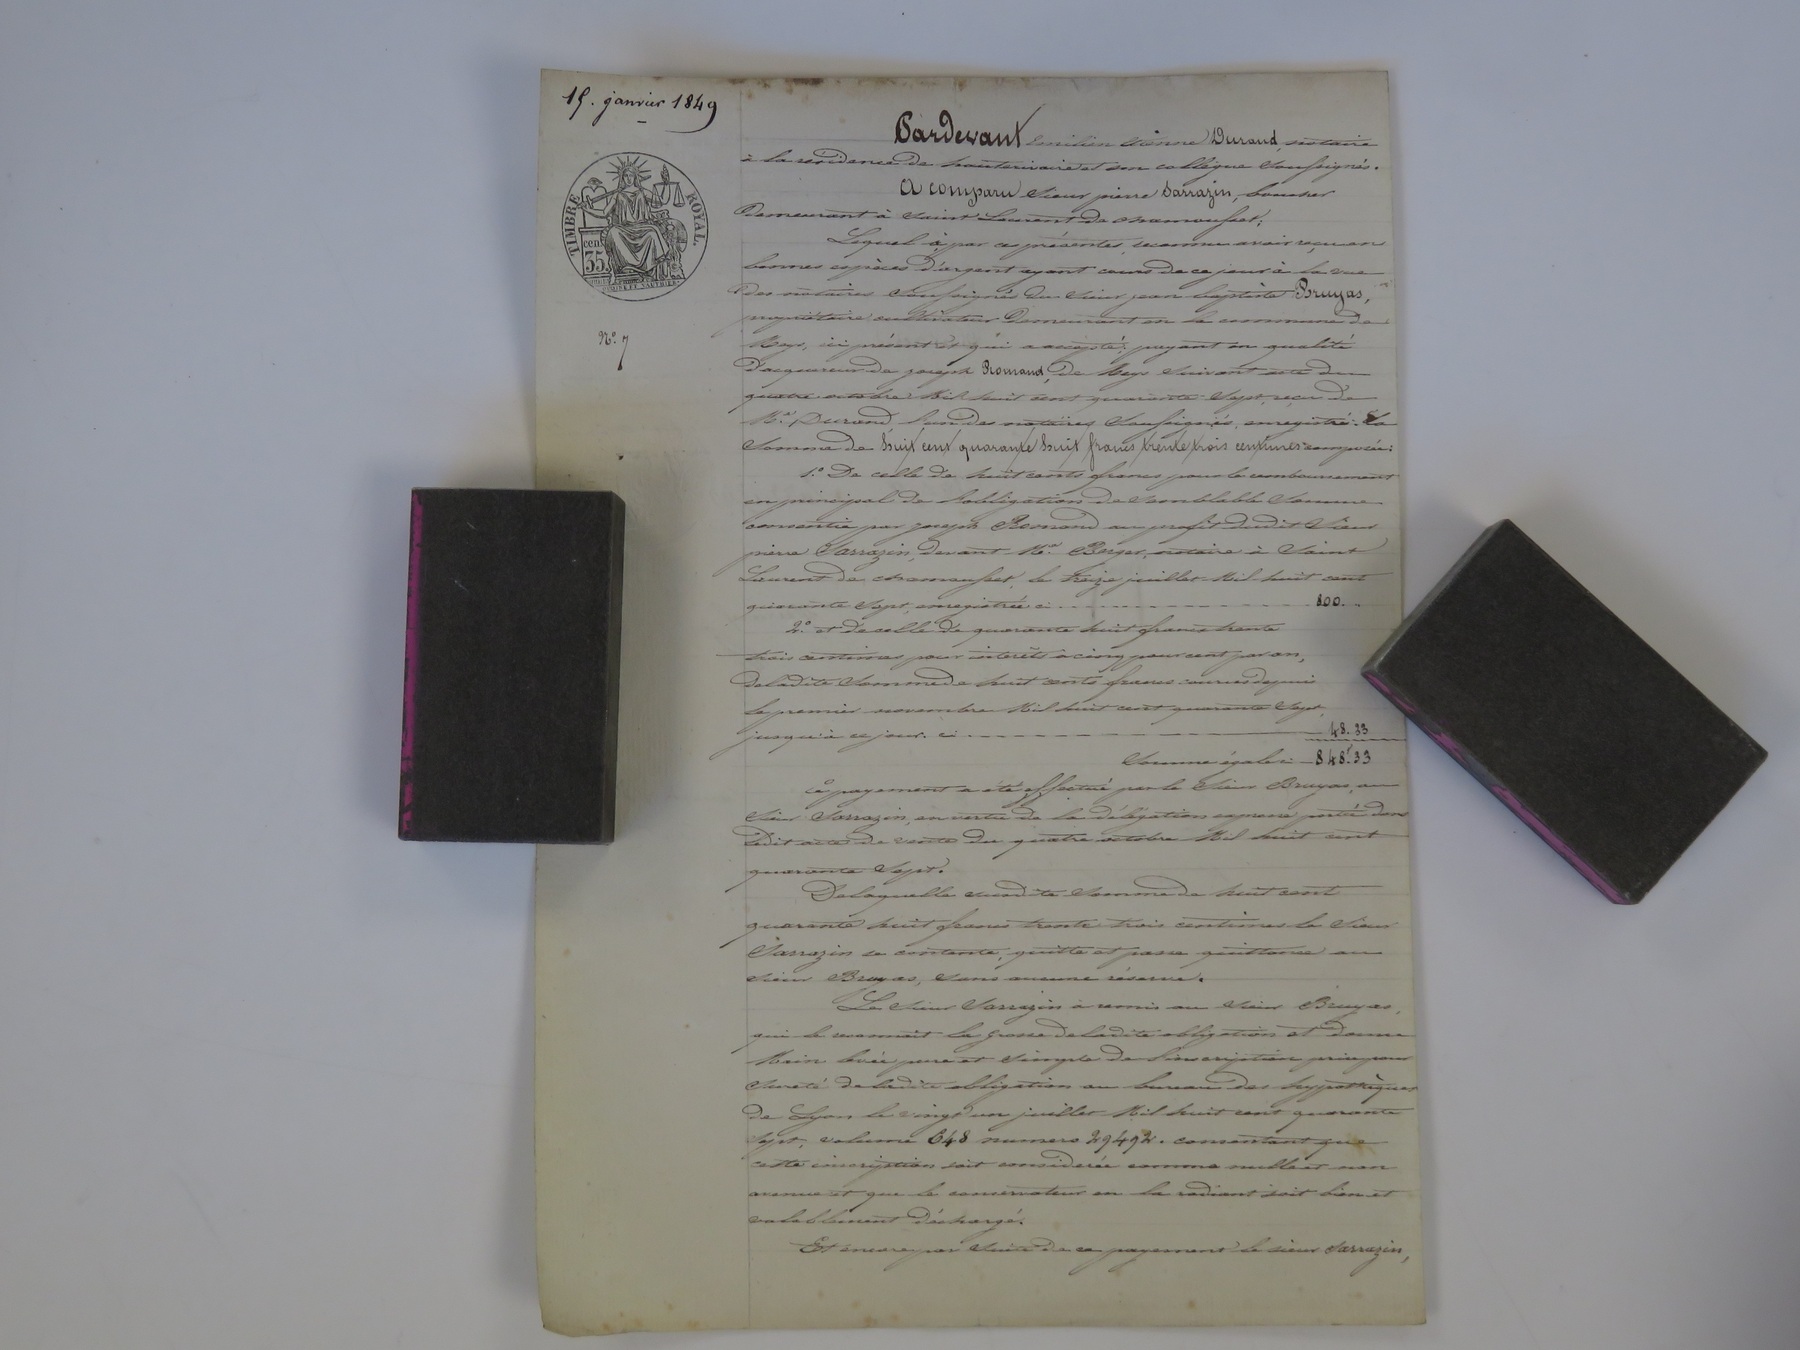 15. janvier 1849
TIMBRE ROYAL.
cent. 35.
N.º 7
Pardevant Emilien Etienne Durand, notaire
à la résidence de hauterivoire et son collègue soussignés.
A comparu Sieur pierre Sarrazin,
Demeurant à Saint Laurent de chamousset;
Lequel à, par ces présentes, reconnu avoir reçu en
bonnes espèces d'argent ayant cours de ce jour à la vue
des notaires soussignés du Sieur jean baptiste Bruyas,
propriétaire cultivateur Demeurant en la commune de
Meys, ici présent et qui a accepté; payant en qualité
d'acquereur de joseph Romand, de Meys suivant acte du
quatre octobre Mil huit cent quarante Sept, reçu de
M.e Durand, l'un des notaires Soussignés, enregistré. La
Somme de huit cent quarante huit francs trente trois centimes composée:
1.º De celle de huit cents francs pour le remboursement
en principal de l'obligation de Semblable Somme
consentie par joseph Romand au profit dudit Sieur
pierre Sarrazin, devant M.e Berger, notaire à Saint
Laurent de chamousset, le treize juillet Mil huit cent
quarante Sept, enregistrée ci 800. "
2.º et de celle de quarante huit francs trente
trois centimes pour intérêts à cinq pour cent par an,
de ladite Somme de huit cents francs courus depuis
le premier novembre Mil huit cent quarante Sept,
jusqu'à ce jour. ci 48. 33
Somme égale ci 848.f 33
Ce payement a été effectué par le Sieur Bruyas, au
Sieur Sarrazin, en vertu de la délégation expresse porté dans
Ledit acte de vente du quatre octobre Mil huit cent
quarante Sept.
De laquelle susdite Somme de huit cent
quarante huit francs trente trois centimes le Sieur
Sarrazin se contente, quitte et passe quittance au
Sieur Bruyas, Sans aucune réserve.
Le Sieur Sarrazin à remis au Sieur Bruyas,
qui le reconnait la grosse de ladite obligation et donne
Main levée pure et Simple de l'inscription prise pour
Sureté de ladite obligation au bureau des hypothèques
de Lyon le vingt un juillet Mil huit cent quarante
Sept, volume 648 numero 29492. consentant que
cette inscription soit considérée comme nulle et non
avenue et que le conservateur en la radiant soit bien et
valablement déchargé.
Et encore par Suite de ce payement le sieur Sarrazin,